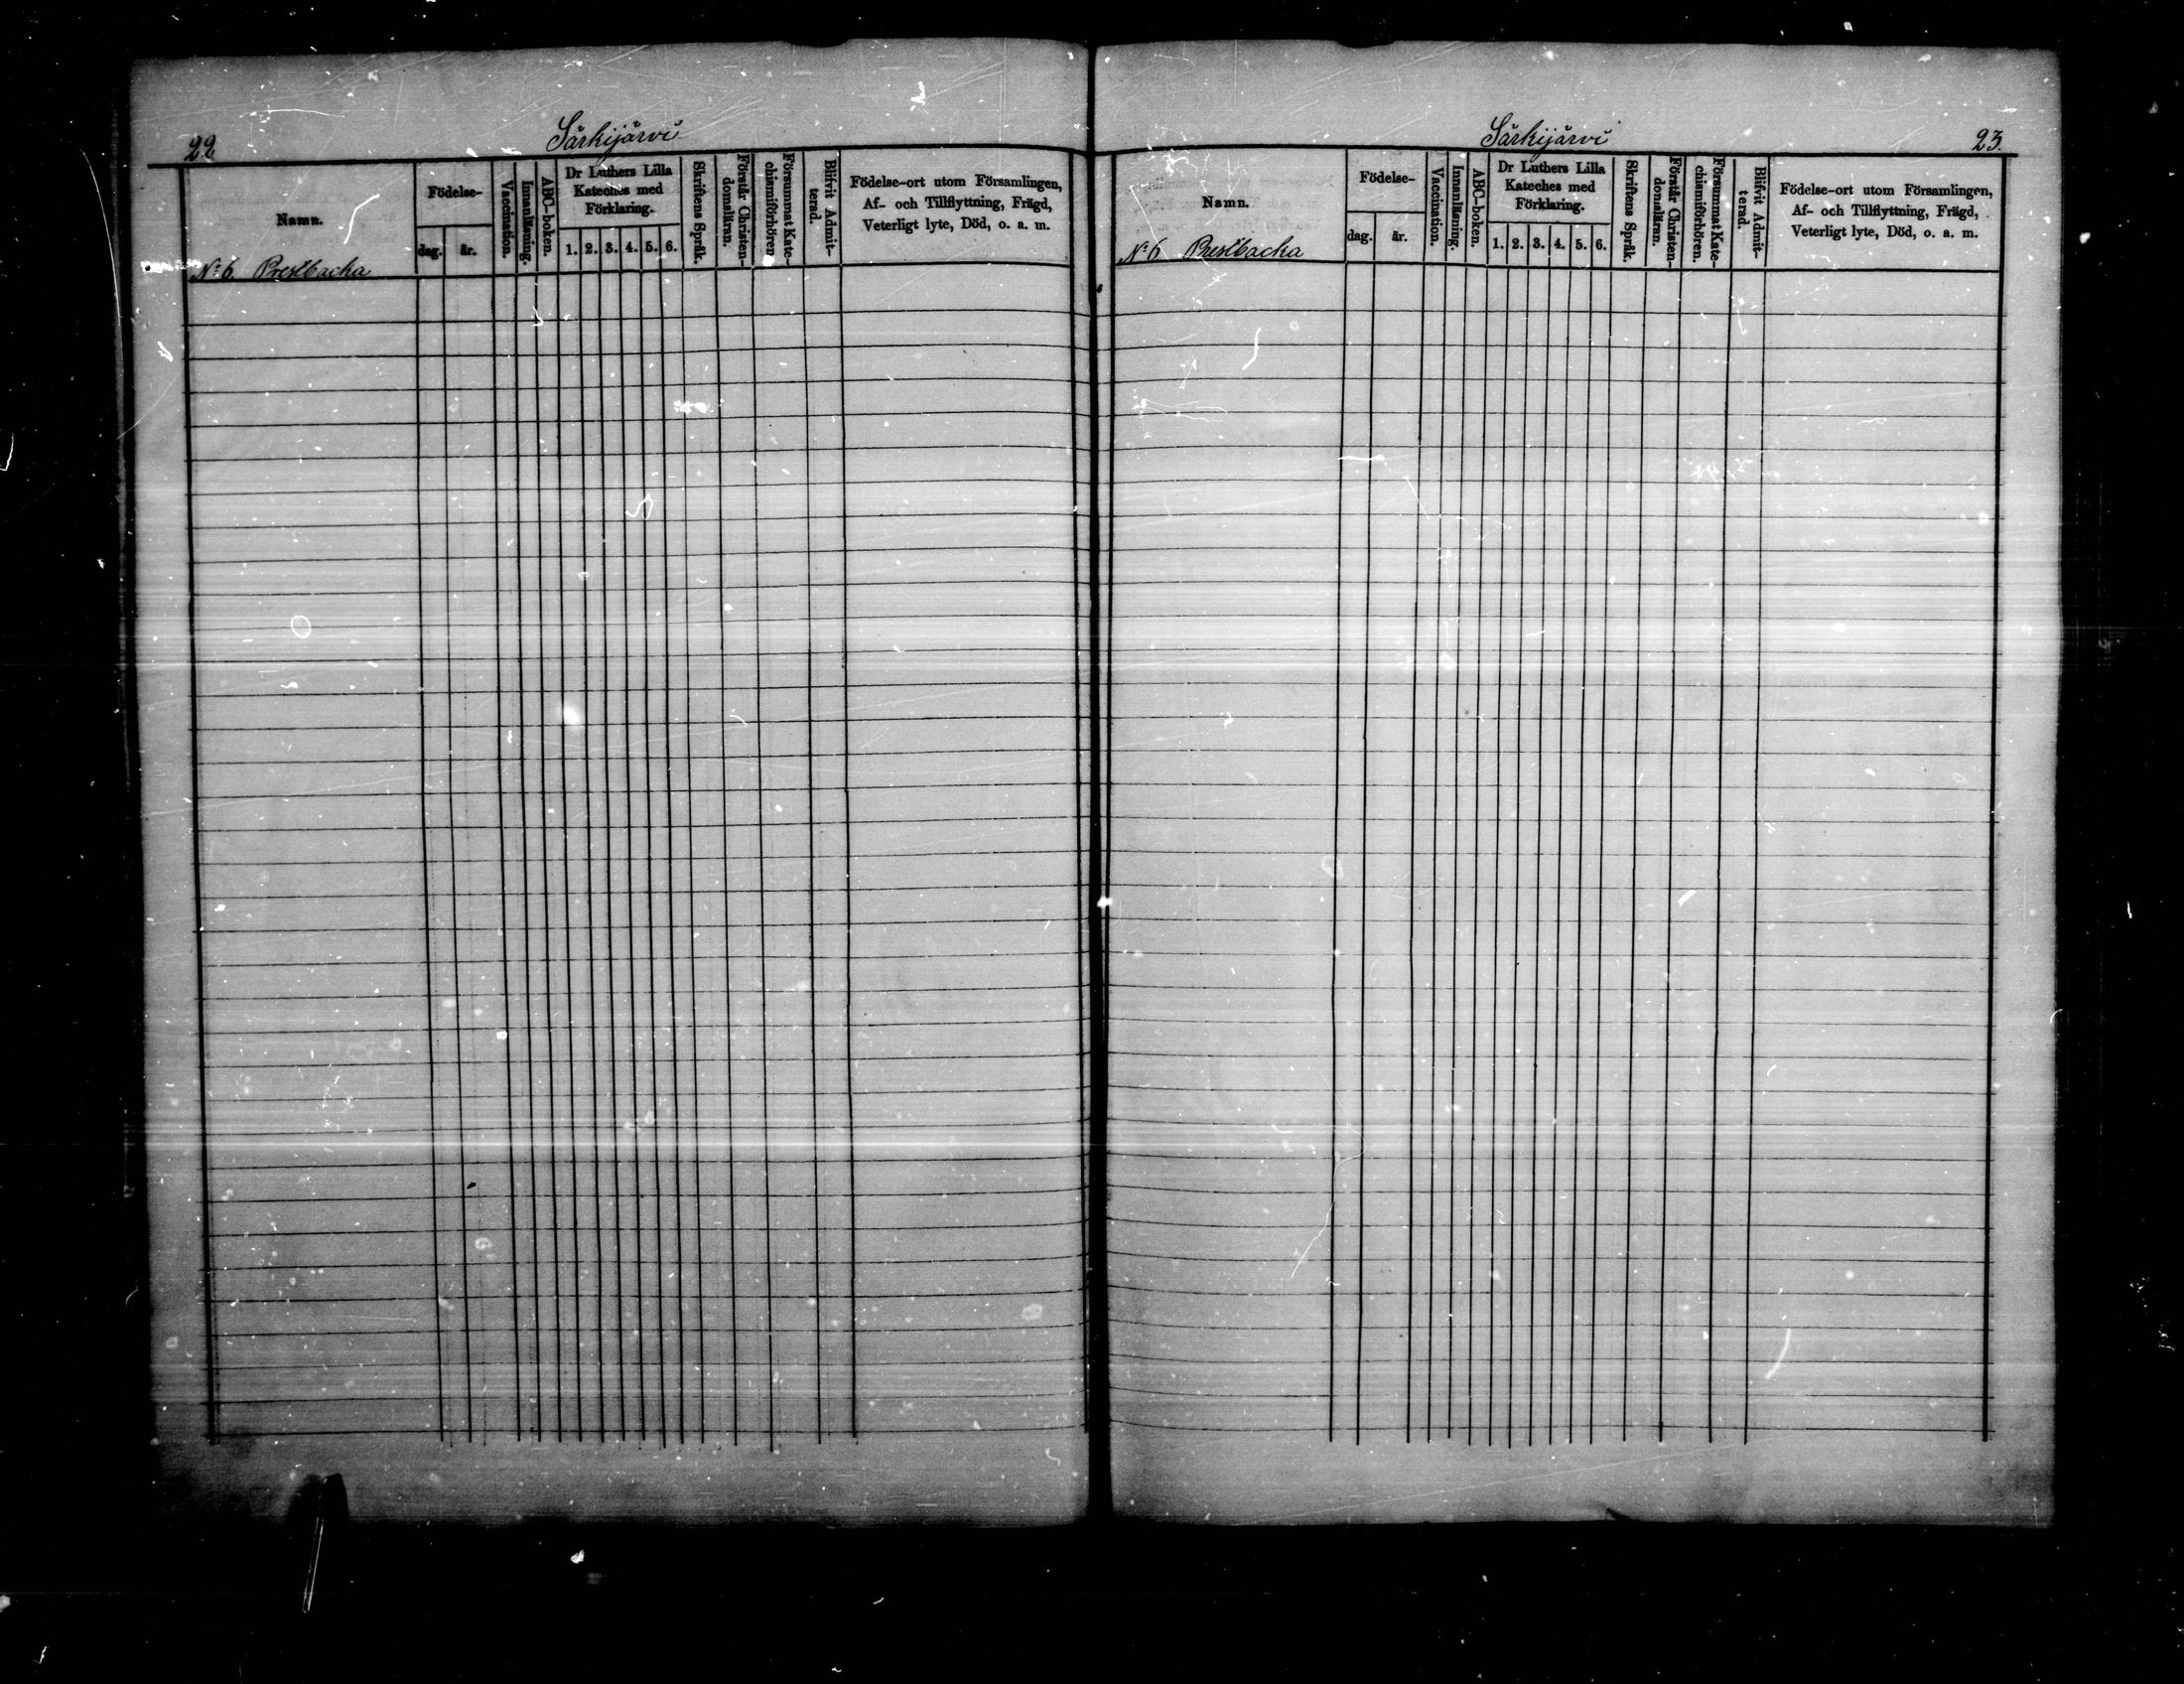 22
Särkijärvi
Namn.
Födelse-
dag.
år.
Vaccination.
Innanläsning.
ABC-boken.
Dr Luthers Lilla
Kateches med
Förklaring.
1. 2. 3. 4. 5. 6.
Skriftens Språk.
Förstår Christen-
domsläran.
Försummat Kate-
chismiförhören
Blifvit Admit-
terad.
Födelse-ort utom Församlingen,
Af- och Tillflyttning, Frägd,
Veterligt lyte, Död, o. a. m.
No 6 Prestbacka
Särkijärvi
23.
Namn.
Födelse-
dag.
år.
Vaccination.
Innanläsning.
ABC-boken.
Dr Luthers Lilla
Kateches med
Förklaring.
1. 2. 3. 4. 5. 6.
Skriftens Språk.
Förstår Christen-
domsläran.
Försummat Kate-
chismiförhören.
Blifvit Admit-
terad.
Födelse-ort utom Församlingen,
Af- och Tillflyttning, Frägd,
Veterligt lyte, Död, o. a. m.
No 6 Prestbacka